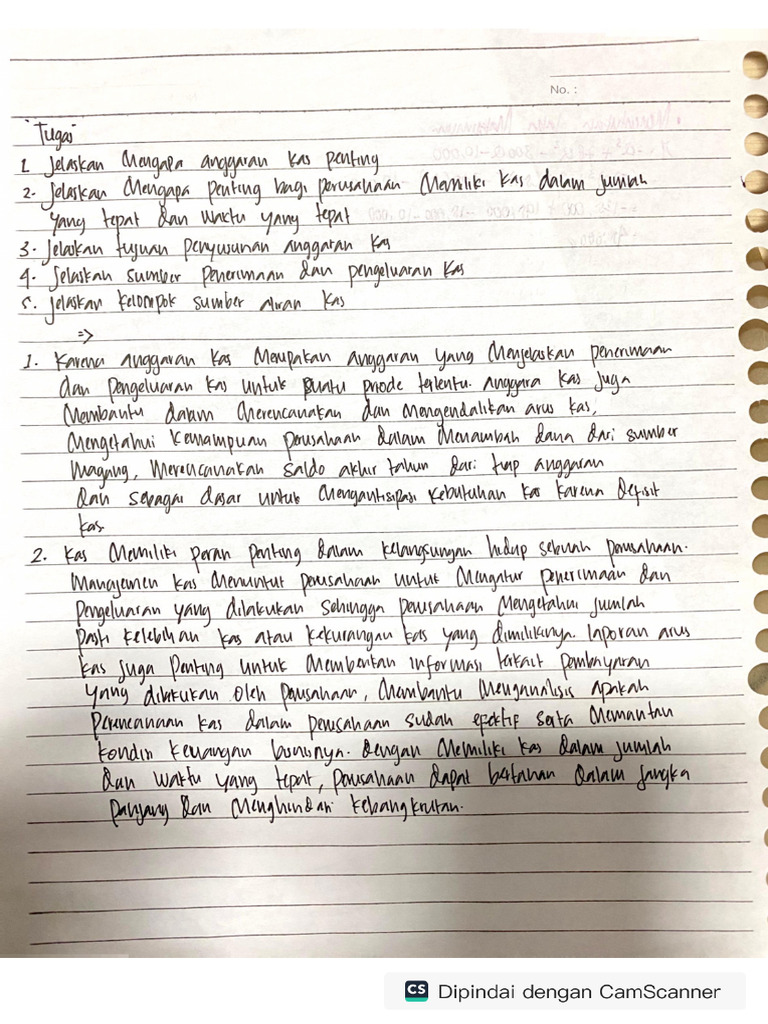 No. :
"Tugas"
1. Jelaskan Mengapa anggaran kas penting
2. Jelaskan Mengapa penting bagi perusahaan Memiliki kas dalam jumlah
yang tepat dan waktu yang tepat
3. Jelaskan tujuan penyusunan anggaran kas
4. Jelaskan sumber penerimaan dan pengeluaran kas
5. Jelaskan kelompok sumber aliran kas
=>
1. Karena anggaran kas Merupakan anggaran yang Menjelaskan penerimaan
dan pengeluaran kas untuk suatu priode tertentu. anggara kas juga
Membantu dalam Merencanakan dan Mengendalikan arus kas,
Mengetahui kemampuan perusahaan dalam Menambah dana dari sumber
Magang, Merencanakan saldo akhir tahun dari tiap anggaran
dan sebagai dasar untuk Mengantisipasi kebutuhan kas karena defisit
kas.
2. Kas Memiliki peran penting dalam kelangsungan hidup sebuah perusahaan.
Manajemen kas Menuntut perusahaan untuk Mengatur penerimaan dan
pengeluaran yang dilakukan sehingga perusahaan Mengetahui jumlah
pasti kelebihan kas atau kekurangan kas yang dimilikinya. laporan arus
kas juga penting untuk Memberikan informasi terkait pembayaran
yang dilakukan oleh perusahaan, Membantu Menganalisis apakah
perencanaan kas dalam perusahaan sudah efektif serta Memantau
kondisi keuangan bisnisnya. dengan Memiliki kas dalam jumlah
dan waktu yang tepat, perusahaan dapat bertahan dalam jangka
panjang dan Menghindari kebangkrutan.
CS Dipindai dengan CamScanner